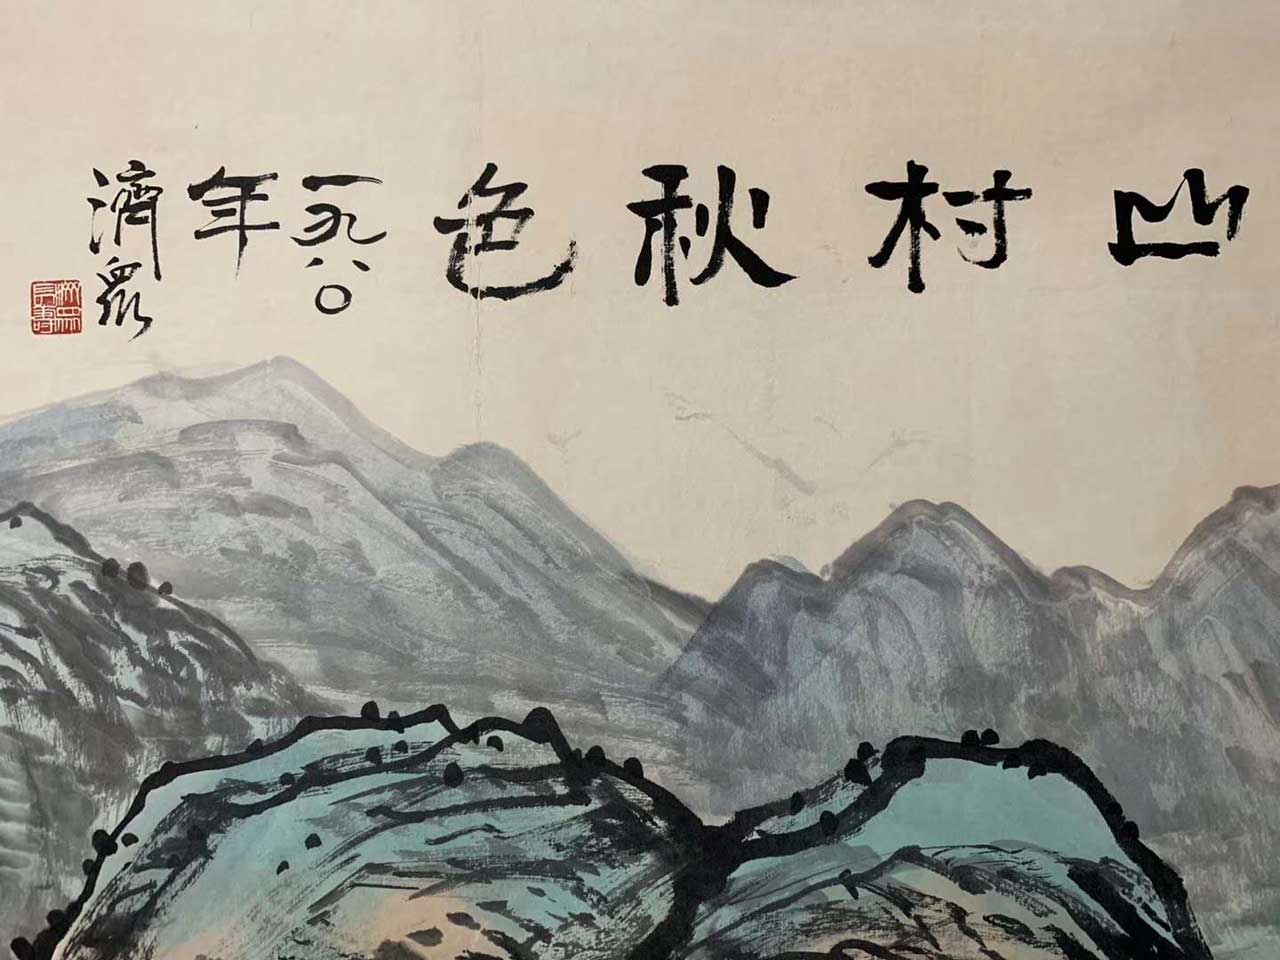 山村秋色
一九八〇
年
濟眾